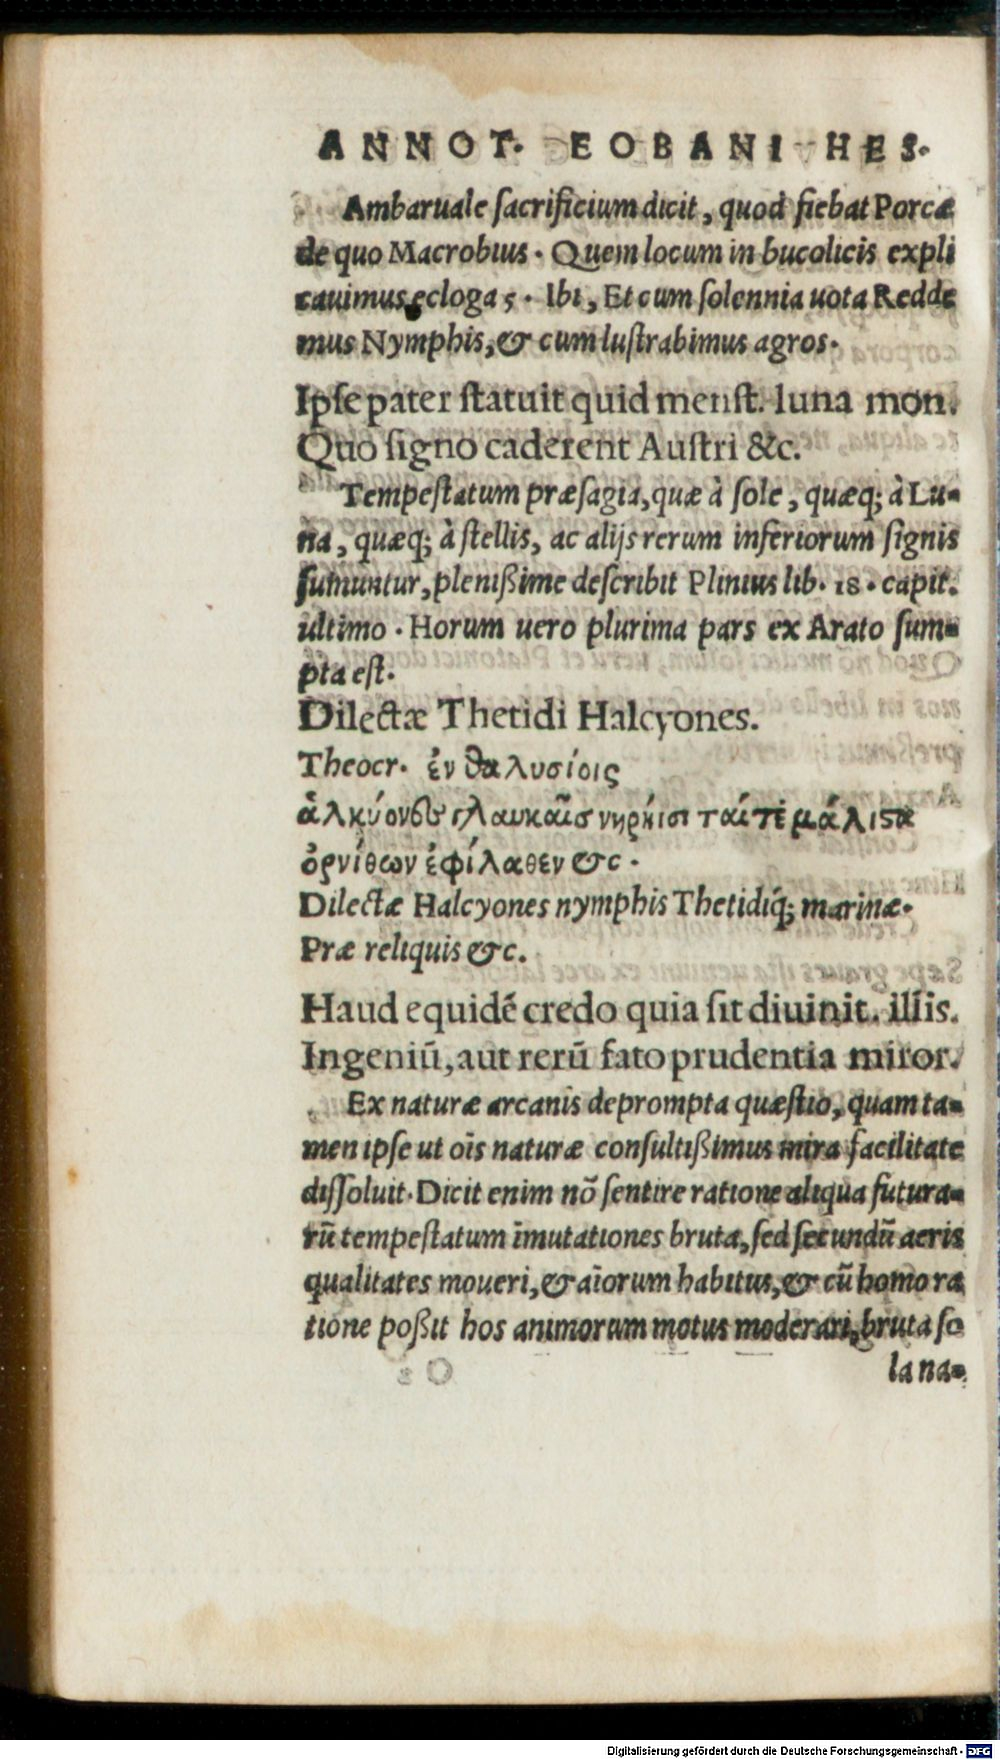 ANNOT. EOBANI HES.
Ambaruale ſacrificium dicit, quod fiebat Porcæ
de quo Macrobius. Quem locum in bucolicis expli
cauimus ecloga 5. Ibi, Et cum ſolennia uota Redde
mus Nymphis, & cum luſtrabimus agros.
Ipſe pater ſtatuit quid menſt. luna mon.
Quo ſigno caderent Auſtri &c.
Tempeſtatum præſagia, quæ à ſole, quæq; à Lu-
na, quæq; à ſtellis, ac alijs rerum inferiorum ſignis
ſumuntur, pleniſsime deſcribit Plinius lib. 18. capit.
ultimo. Horum uero plurima pars ex Arato ſum-
pta eſt.
Dilectæ Thetidi Halcyones.
Theocr. ἐν θαλυσίοις
ἀλκύονες γλαυκαῖσ νηρηίσι ταί τε μάλιϛα
ὀρνίθων ἐφίλαθεν &c.
Dilectæ Halcyones nymphis Thetidiq́; marinæ.
Præ reliquis &c.
Haud equidē credo quia ſit diuinit. illis.
Ingeniū, aut rerū fato prudentia miror.
Ex naturæ arcanis deprompta quæſtio, quam ta-
men ipſe ut oīs naturæ conſultiſsimus mira facilitate
diſſoluit. Dicit enim nō ſentire ratione aliqua futura-
rū tempeſtatum īmutationes bruta, ſed ſecundū aeris
qualitates moueri, & aīorum habitus, & cū homo ra
tione poſsit hos animorum motus moderari, bruta ſo
la na-
Digitalisierung gefördert durch die Deutsche Forschungsgemeinschaft - DFG